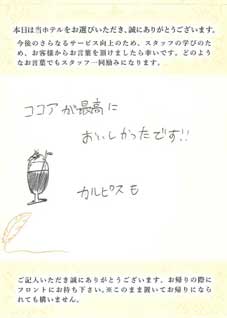 本日は当ホテルをお選びいただき、誠にありがとうございます。
今後のさらなるサービス向上のため、スタッフの学びのた
め、お客様からお言葉を頂けましたら幸いです。どのよう
なお言葉でもスタッフ一同励みになります。
ココアが最高に
おいしかったです!!
カルピスも
ご記入いただき誠にありがとうございます。お帰りの際に
フロントにお持ち下さい。※このまま置いてお帰りになら
れても構いません。